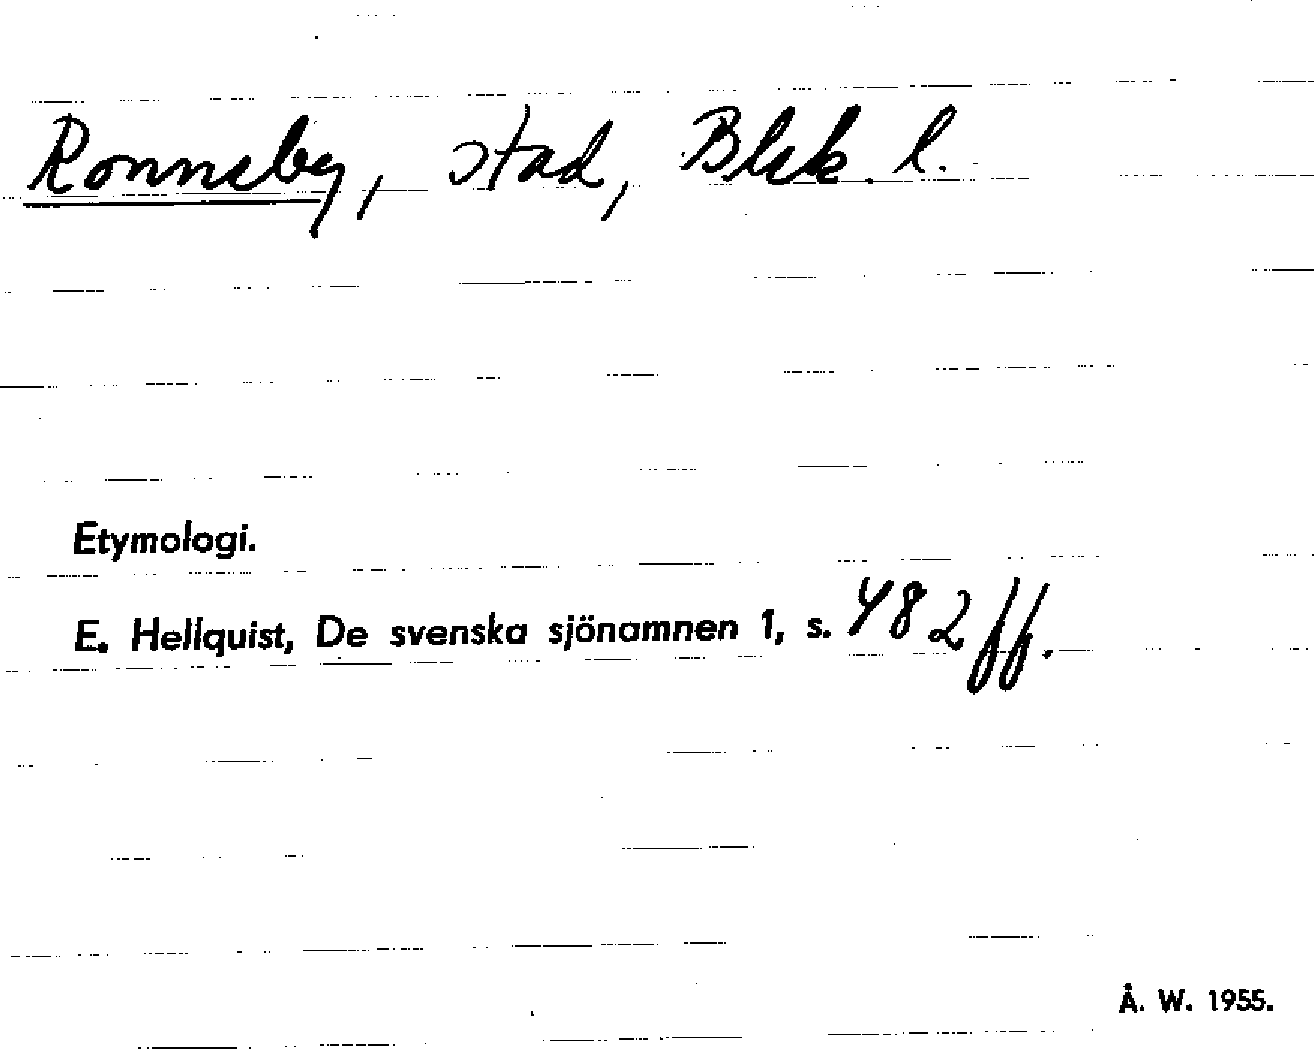 Ronneby, stad, Blek. l.
Etymologi.
E. Hellquist, De svenska sjönamnen 1, s. 482 ff.
Å. W. 1955.